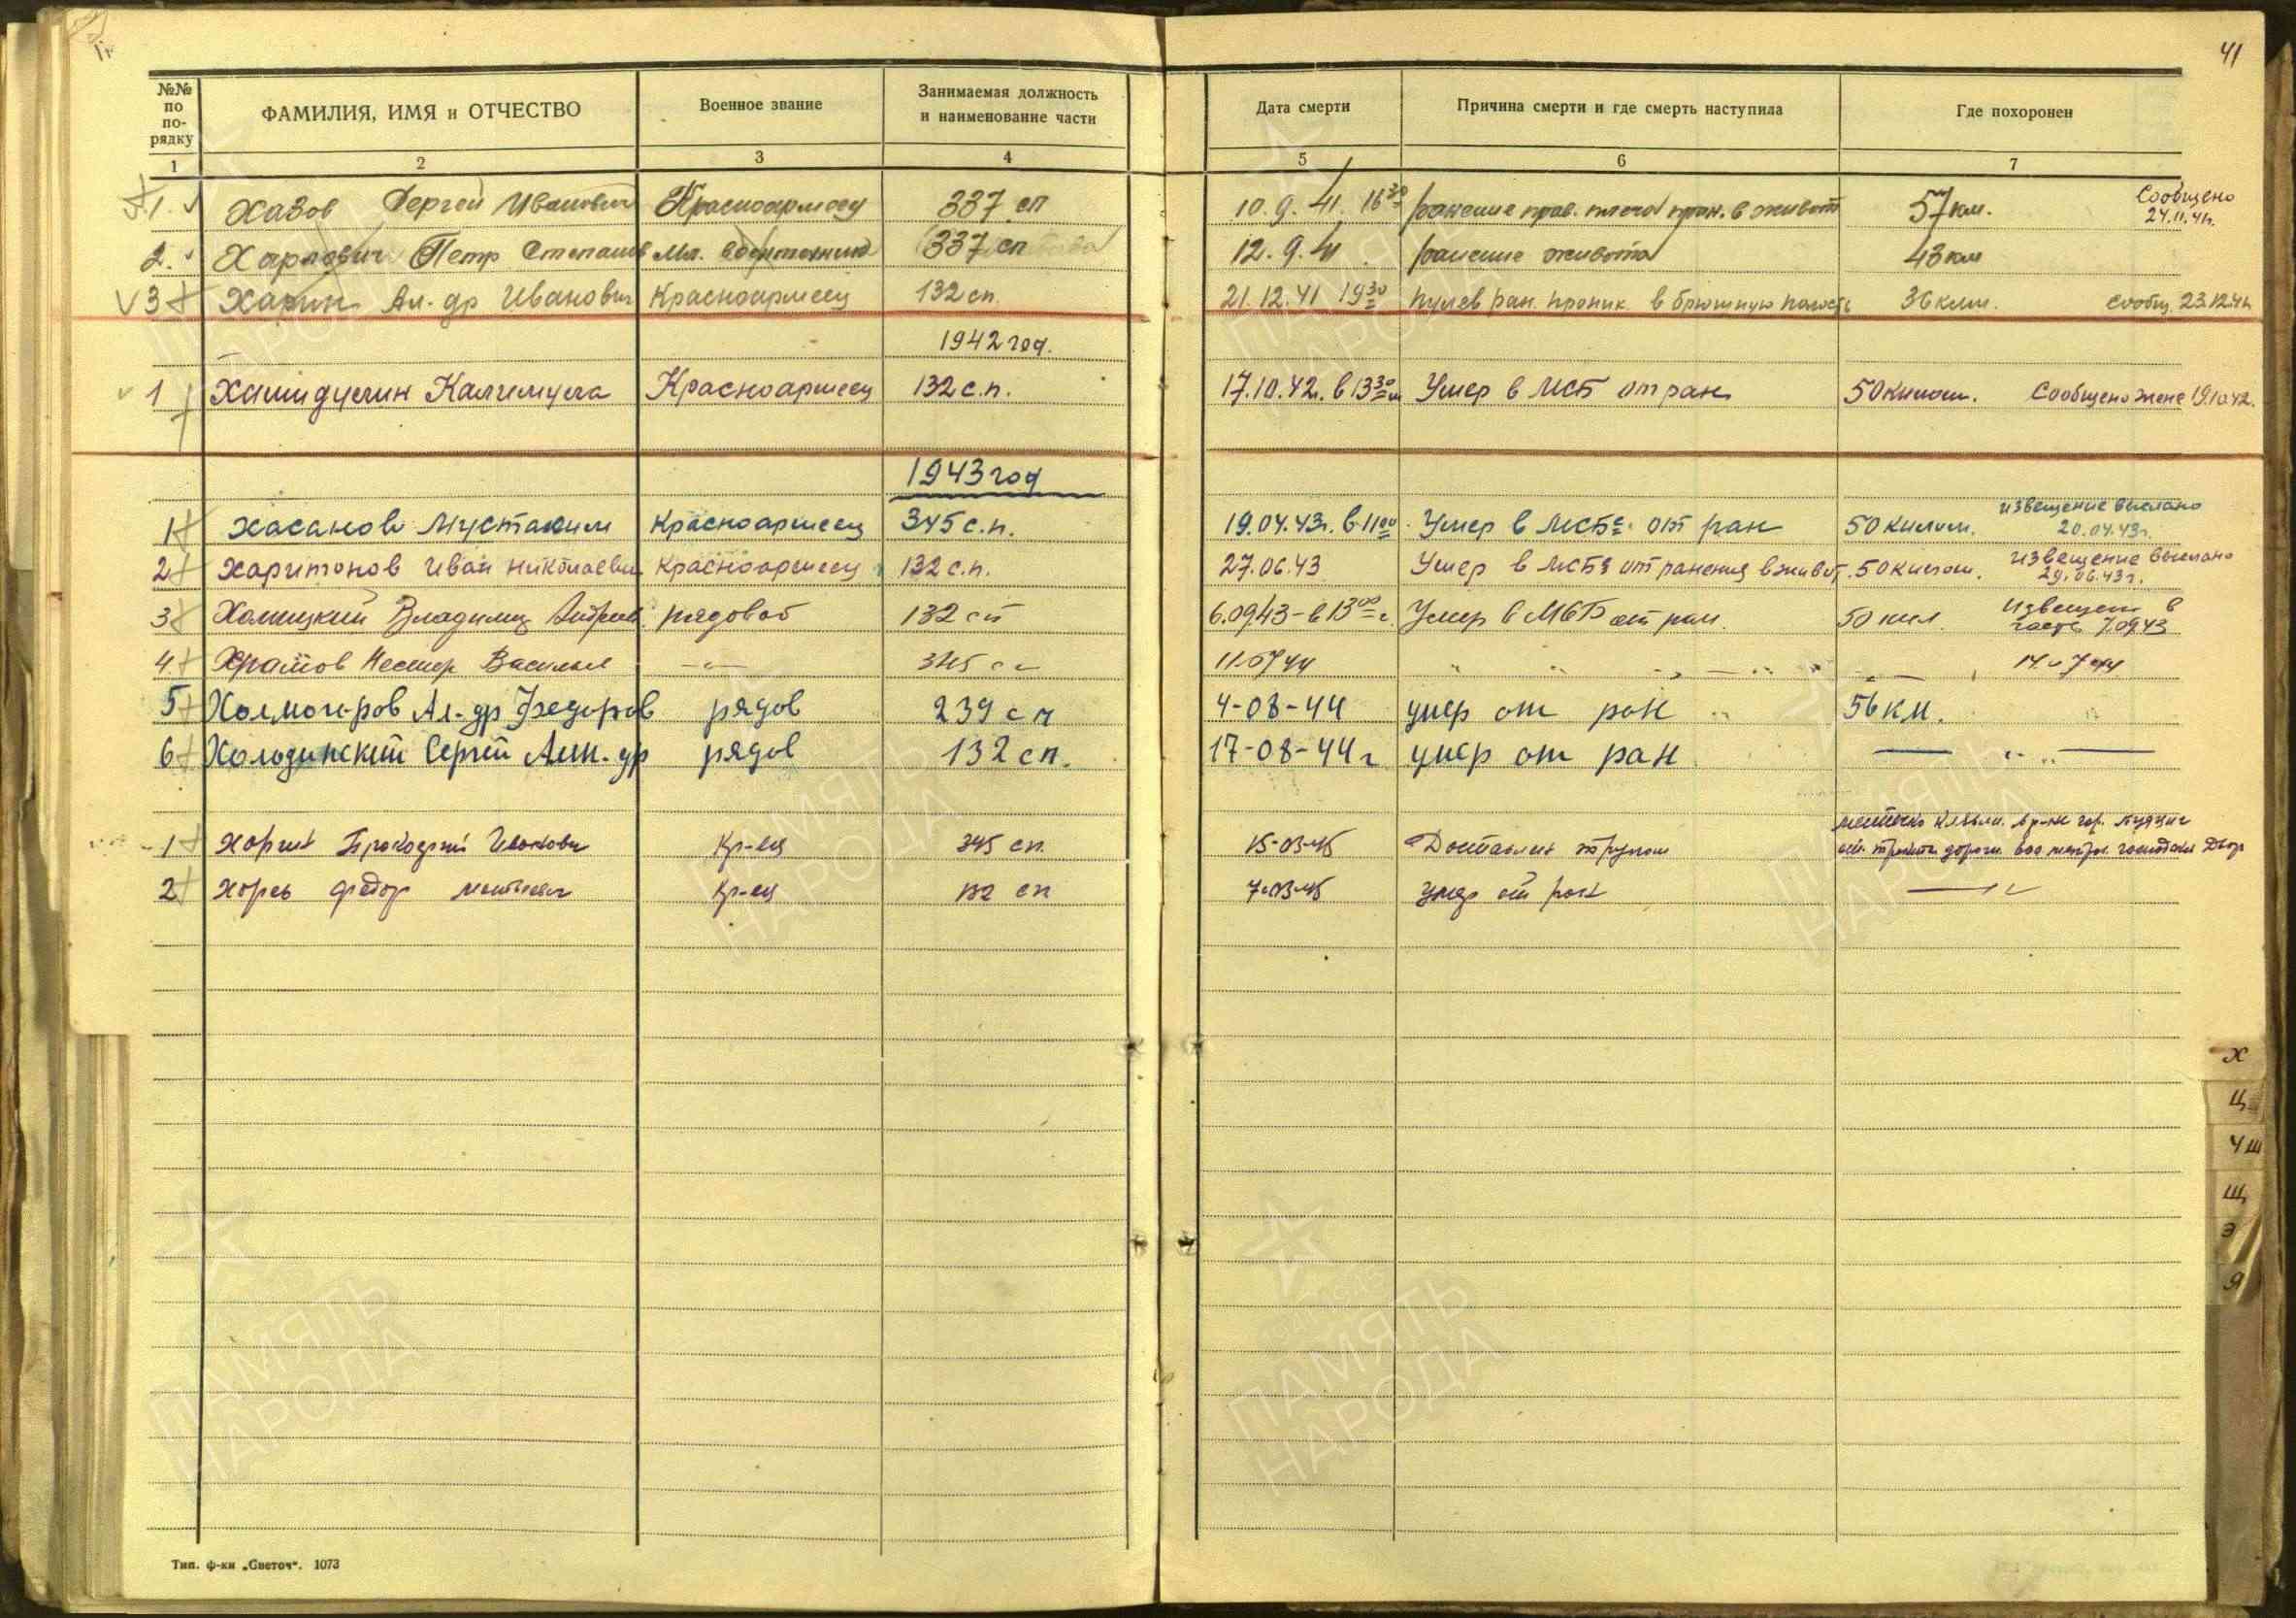 41
№№ по по-рядку
ФАМИЛИЯ, ИМЯ и ОТЧЕСТВО
Военное звание
Занимаемая должность и наименование части
Дата смерти
Причина смерти и где смерть наступила
Где похоронен
1 2 3 4 5 6 7
1. Хазов Сергей Иванович Красноармеец 337 сп 10.9.41. 16 30 ранение прав. плеча прон. в живот 57 км. Сообщено 24.11.41г.
2. Харлович Петр Степанов Мл. воентехник 337 сп 12.9.41 ранение живота 43 км
3 Харин Ал-др Иванович Красноармеец 132 сп. 21.12.41 19 30 Пулев ран. проник. в брюшную полость 36 клм. сообщ. 23.12.41г
1942 год.
1 Красноармеец 132 с.п. 17.10.42г. в 13 30 Умер в МСБ от ран 50 килом. Сообщено жене 19.10.42.
1943 год
1 Хасанов Мустаким Красноармеец 345 с.п. 19.04.43г. в 11 00 Умер в МСБе от ран 50 килом. извещение выслано 20.04.43г.
2 Харитонов Иван Николаевич Красноармеец 132 с.п. 27.06.43 Умер в МСБе от ранения в живот. 50 килом. извещение выслано 29.06.43г.
3 Владимир рядовой 132 сп 6.09.43 - в 13 00 Умер в МСБ от ран. 50 кил. Извещен в часть 7.09.43
4 Храмов Нестер Васильев -„- 345 сп 11.07.44 „ „ „ 14.7.44
5 Холмогоров Ал-др Федоров рядов 239 сп 4-08-44 умер от ран 56 км.
6 Холодинский Сергей Алек-др рядов 132 сп. 17-08-44 г умер от ран — „ —
1 Хорин Прокофий Иванович Кр-ец 345 сп. 15-03-45 Доставлен трупом
2 Хорев Федор Матвеевич Кр-ец 132 сп 7-03-45 умер от ран —„—
Х
Ц
Ч Ш
Щ
Э
Я
Тип. ф-ки „Светоч“. 1073
ПАМЯТЬ НАРОДА